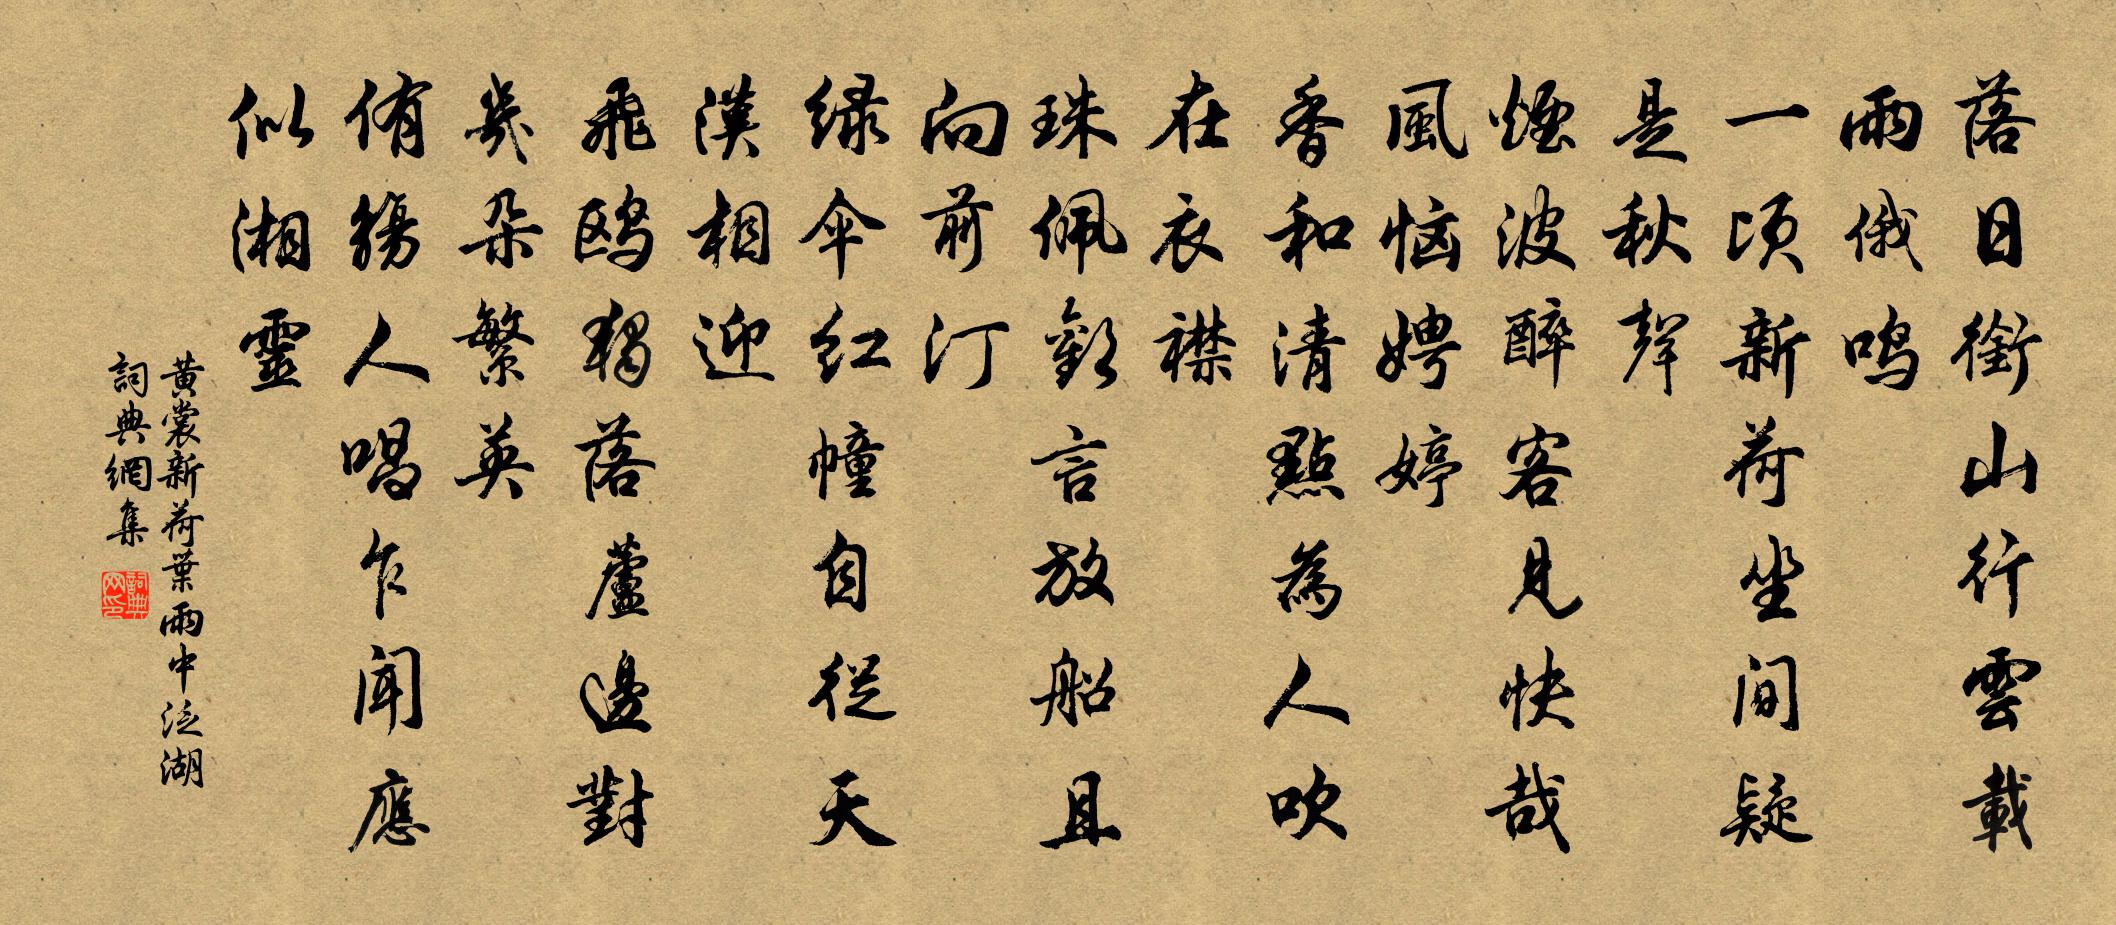 落日銜山行雲載
雨俄鳴
一頃新荷坐間疑
是秋聲
煙波醉客見快哉
風惱娉婷
香和清點為人吹
在衣襟
珠佩歡言放船且
向前汀
綠傘紅幢自從天
漢相迎
飛鷗獨落蘆邊對
幾朵繁英
侑觴人唱乍聞應
似湘靈
黃裳新荷葉雨中泛湖
詞典網集
詞典网印